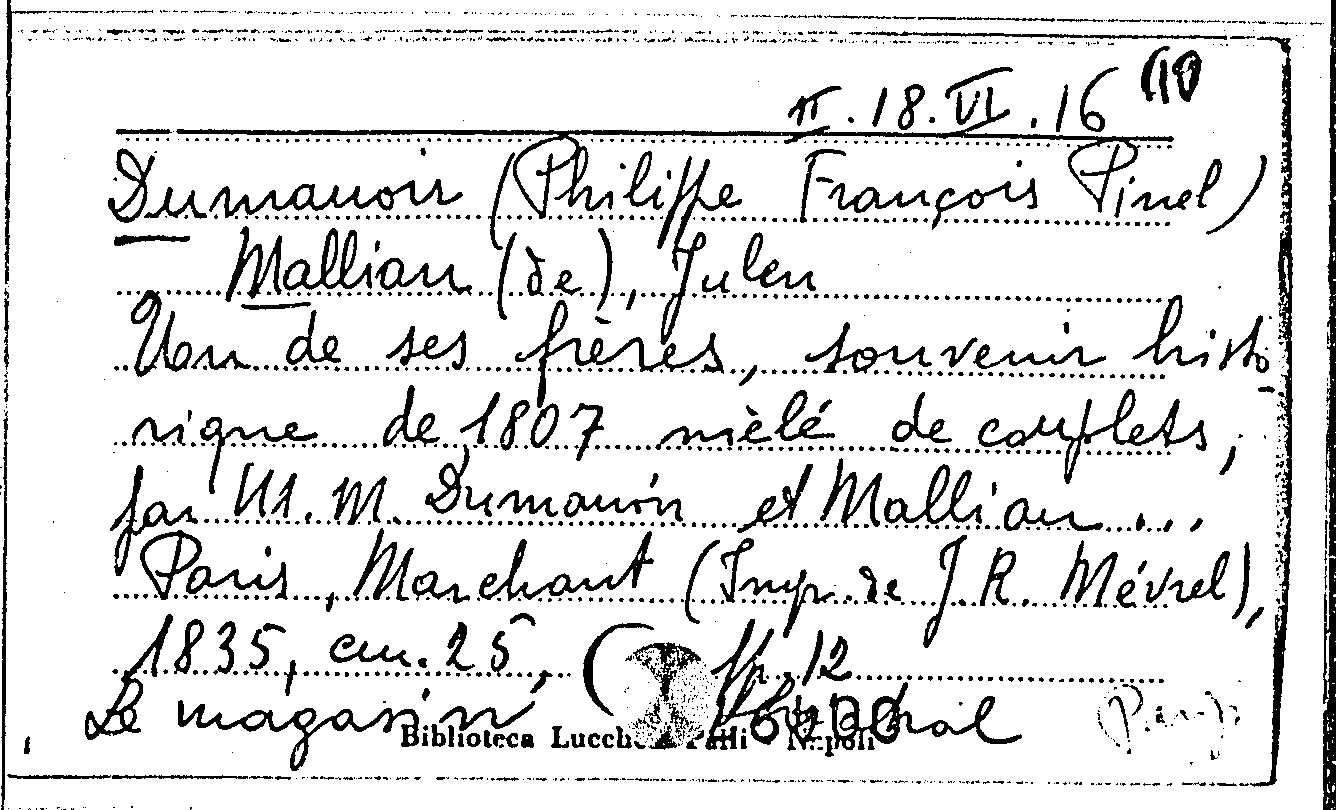 II.18.VI.16 (10
Dumanoir (Philippe François Pinel)
Mallian (de), Julen
Un de ses frères, souvenir histo-
rique de 1807 mèlé de couplets,
par M.M. Dumanoir et Mallian...
Paris, Marchant (Imp. de J.R. Mévrel),
1835, cm. 25, pp. 12
Le magasin théatral
Biblioteca Lucchesi Palli - Napoli